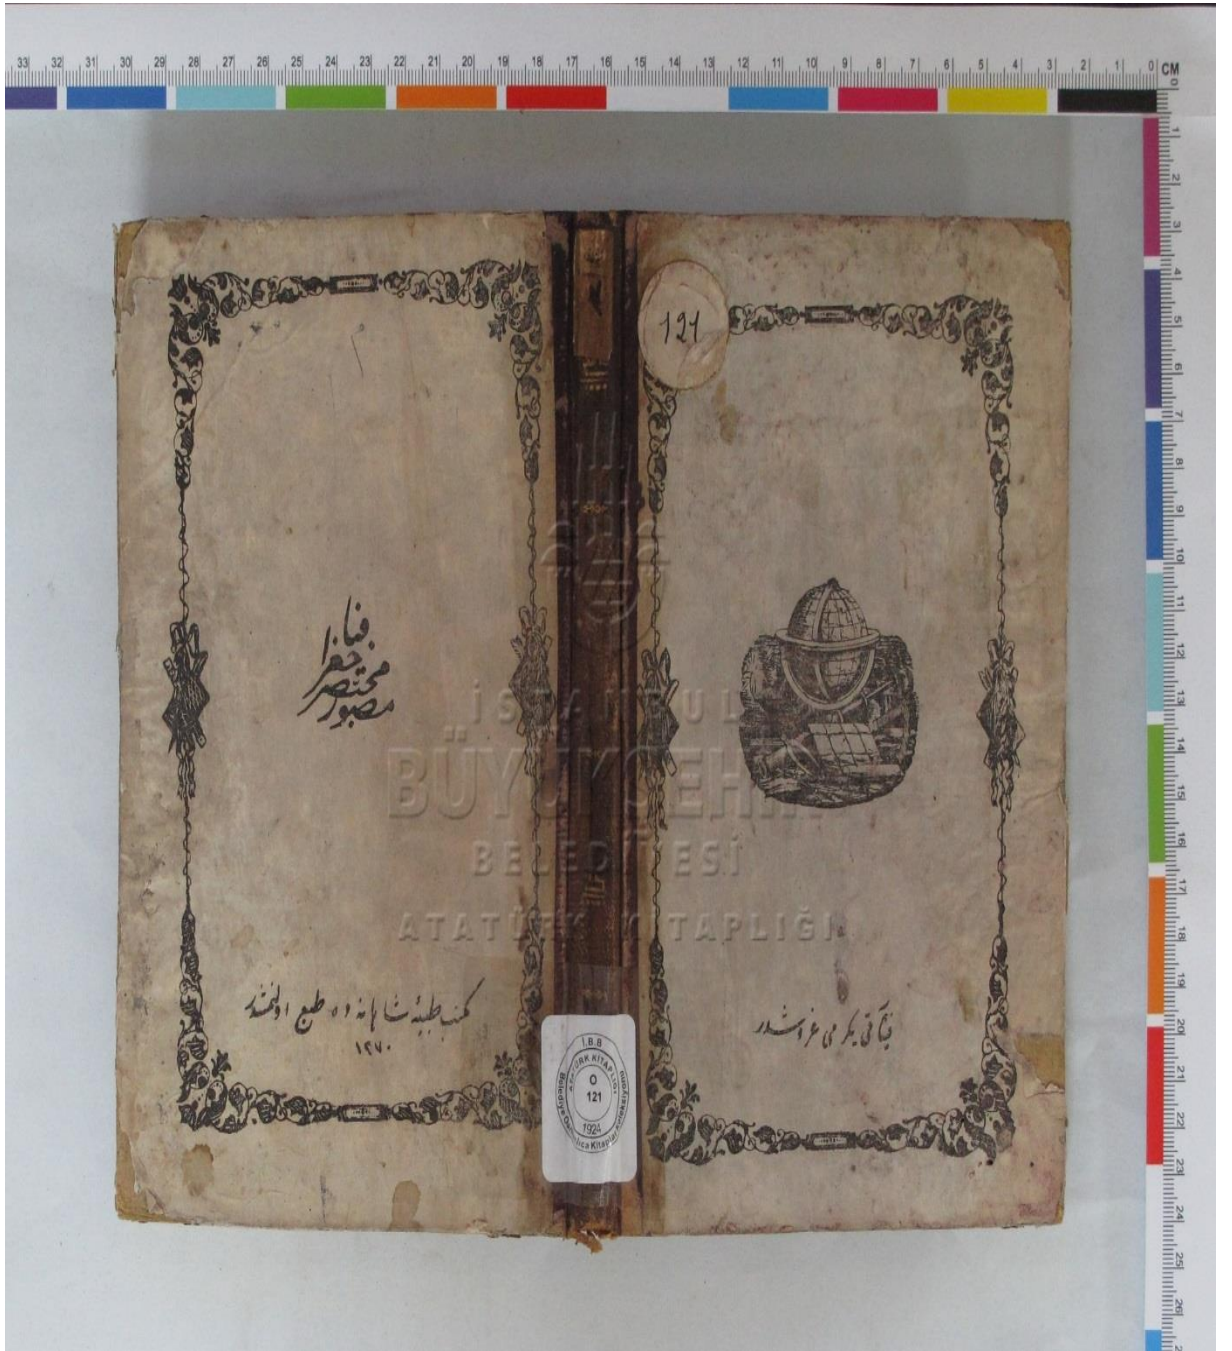 33 32 31 30 29 28 27 26 25 24 23 22 21 20 19 18 17 16 15 14 13 12 11 10 9 8 7 6 5 4 3 2 1 0 CM
0 1 2 3 4 5 6 7 8 9 10 11 12 13 14 15 16 17 18 19 20 21 22 23 24 25 26
121
فيا
جغرا
مختصر
مصور
مكتب طبيۀ شاهانه ده طبع اولنمشدر
١٢٧٠
فيآتى يكرمى غروشدر
İSTANBUL
BÜYÜKŞEHİR
BELEDİYESİ
ATATÜRK KİTAPLIĞI
İ.B.B
ATATÜRK KİTAPLIĞI
O
121
1924
Belediye Osmanlıca Kitaplar Koleksiyonu